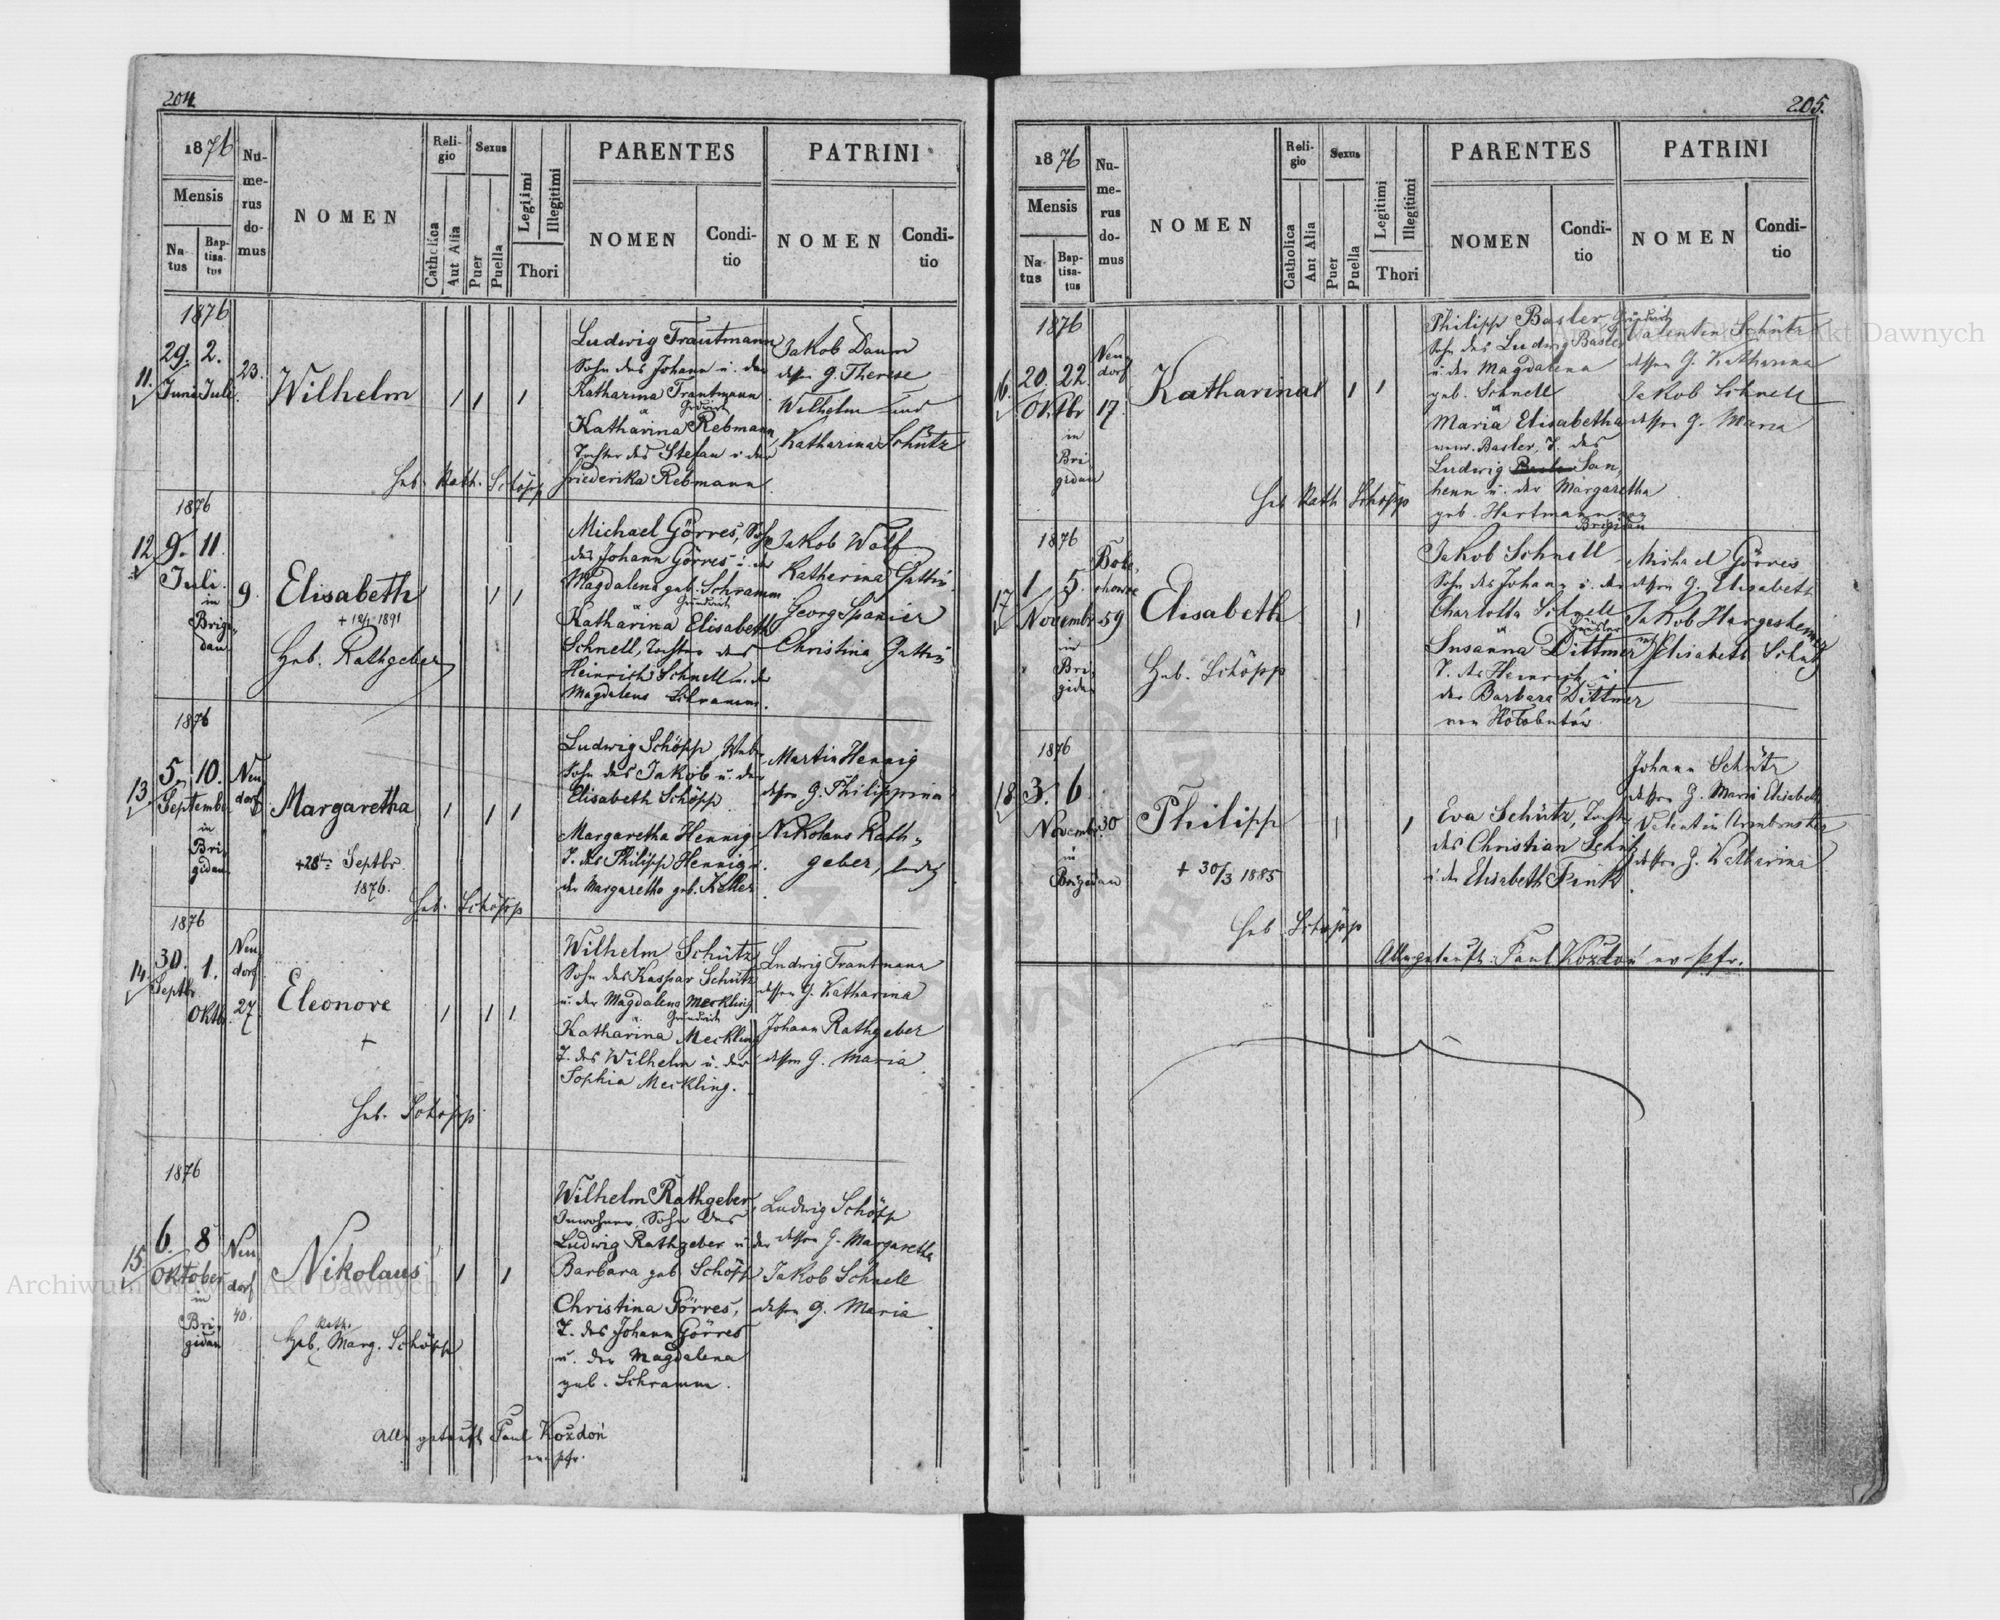 204.
1876
Mensis
Na-
tus
Bap-
tisa-
tus
Nu-
me-
rus
do-
mus
NOMEN
Reli-
gio
Catholica
Aut Alia
Sexus
Puer
Puella
Legitimi
Illegitimi
Thori
PARENTES
NOMEN
Condi-
tio
PATRINI
NOMEN
Condi-
tio
1876
11.
29. 2.
Juni Juli
23.
Wilhelm
Heb. Kath. Schöpp
Ludwig Trautmann
Sohn des Johann u. der
Katharina Trautmann
Grundwirt
Katharina Rebmann
Tochter des Stefan u. der
Friederika Rebmann.
Jakob Daum
dessen G. Therese
Wilhelm und
Katharina Schütz
1876
12
9. 11.
Juli.
in
Brigi-
dau
9.
Elisabeth
+ 12/1 1891
Heb. Rathgeber
Michael Görres, Sohn
des Johann Görres u. der
Magdalena geb. Schramm
Grundwirt
Katharina Elisabeth
Schnell, Tochter des
Heinrich Schnell u. der
Magdalena Schramm.
Jakob Wolf
Katherina Gattin
Georg Spanier
Christina Gattin
1876
13.
5. 10.
September
in
Bri-
gidau
Neu
dorf
Margaretha
+ 28ten Septbr
1876.
Heb. Schöpp
Ludwig Schöpp,
Sohn des Jakob u. der
Elisabeth Schöpp
Margaretha Hennig
T. des Philipp Hennig u.
der Margaretha geb. Keller
Martin Hennig
dessen G. Philippina
Nikolaus Rath-
geber, ledig
1876
14.
30. 1.
Septbr
Oktb.
Neu
dorf
27.
Eleonore
+
Heb. Schöpp
Wilhelm Schütz
Sohn des Kaspar Schütz
u. der Magdalena Meckling
Grundwirt
Katharina Meckling
T. des Wilhelm u. der
Sophia Meckling.
Ludwig Trautmann
dessen G. Katharina
Johann Rathgeber
dessen G. Maria.
1876
15.
6. 8
Oktober
in
Bri-
gidau
Neu
dorf
40.
Nikolaus
Kath.
Heb. Marg. Schöpp
Wilhelm Rathgeber,
Inwohner, Sohn des
Ludwig Rathgeber u. der
Barbara geb. Schöpp
Christina Görres,
T. des Johann Görres
u. der Magdalena
geb. Schramm.
Ludwig Schöpp
dessen G. Margaretha
Jakob Schnell
dessen G. Maria.
Alle getauft Paul Kozdoń
ev. Pfr.
205.
1876
Mensis
Na-
tus
Bap-
tisa-
tus
Nu-
me-
rus
do-
mus
NOMEN
Reli-
gio
Catholica
Aut Alia
Sexus
Puer
Puella
Legitimi
Illegitimi
Thori
PARENTES
NOMEN
Condi-
tio
PATRINI
NOMEN
Condi-
tio
1876
16.
20. 22.
Oktbr
in
Bri
gidau
Neu-
dorf
17.
Katharina
Heb. Kath Schöpp
Philipp Basler Grundwirth
Sohn des Ludwig Basler
u. der Magdalena
geb. Schnell
Maria Elisabetha
verw. Basler, T. des
Ludwig San,
henn u. der Margaretha
geb. Hartmann von
Brigidau
Valentin Schütz
dessen G. Katharina
Jakob Schnell
dessen G. Maria
1876
17
1. 5.
Novembr
in
Bri,
gidau
Bole,
chowce
59
Elisabeth
Heb. Schöpp
Jakob Schnell
Sohn des Johann u. der
Charlotta Schnell
Häusler
Susanna Dittmer
T. des Heinrich u.
der Barbara Dittmer
von Hołobutów.
Michael Görres
dessen G. Elisabeth
Jakob Hargesheimer
mit Elisabeth Schütz
1876
18
3. 6.
Novembr
in
Brigidau
30
Philipp
+ 30/3 1885
Heb. Schöpp
Eva Schütz, Tochter
des Christian Schütz
u. der Elisabeth Fink
Johann Schütz
dessen G. Maria Elisabeth
Valentin Armbruster
dessen G. Katharina
Alle getauft: Paul Kozdoń ev. Pfr.
Archiwum Główne Akt Dawnych
Archiwum Główne Akt Dawnych